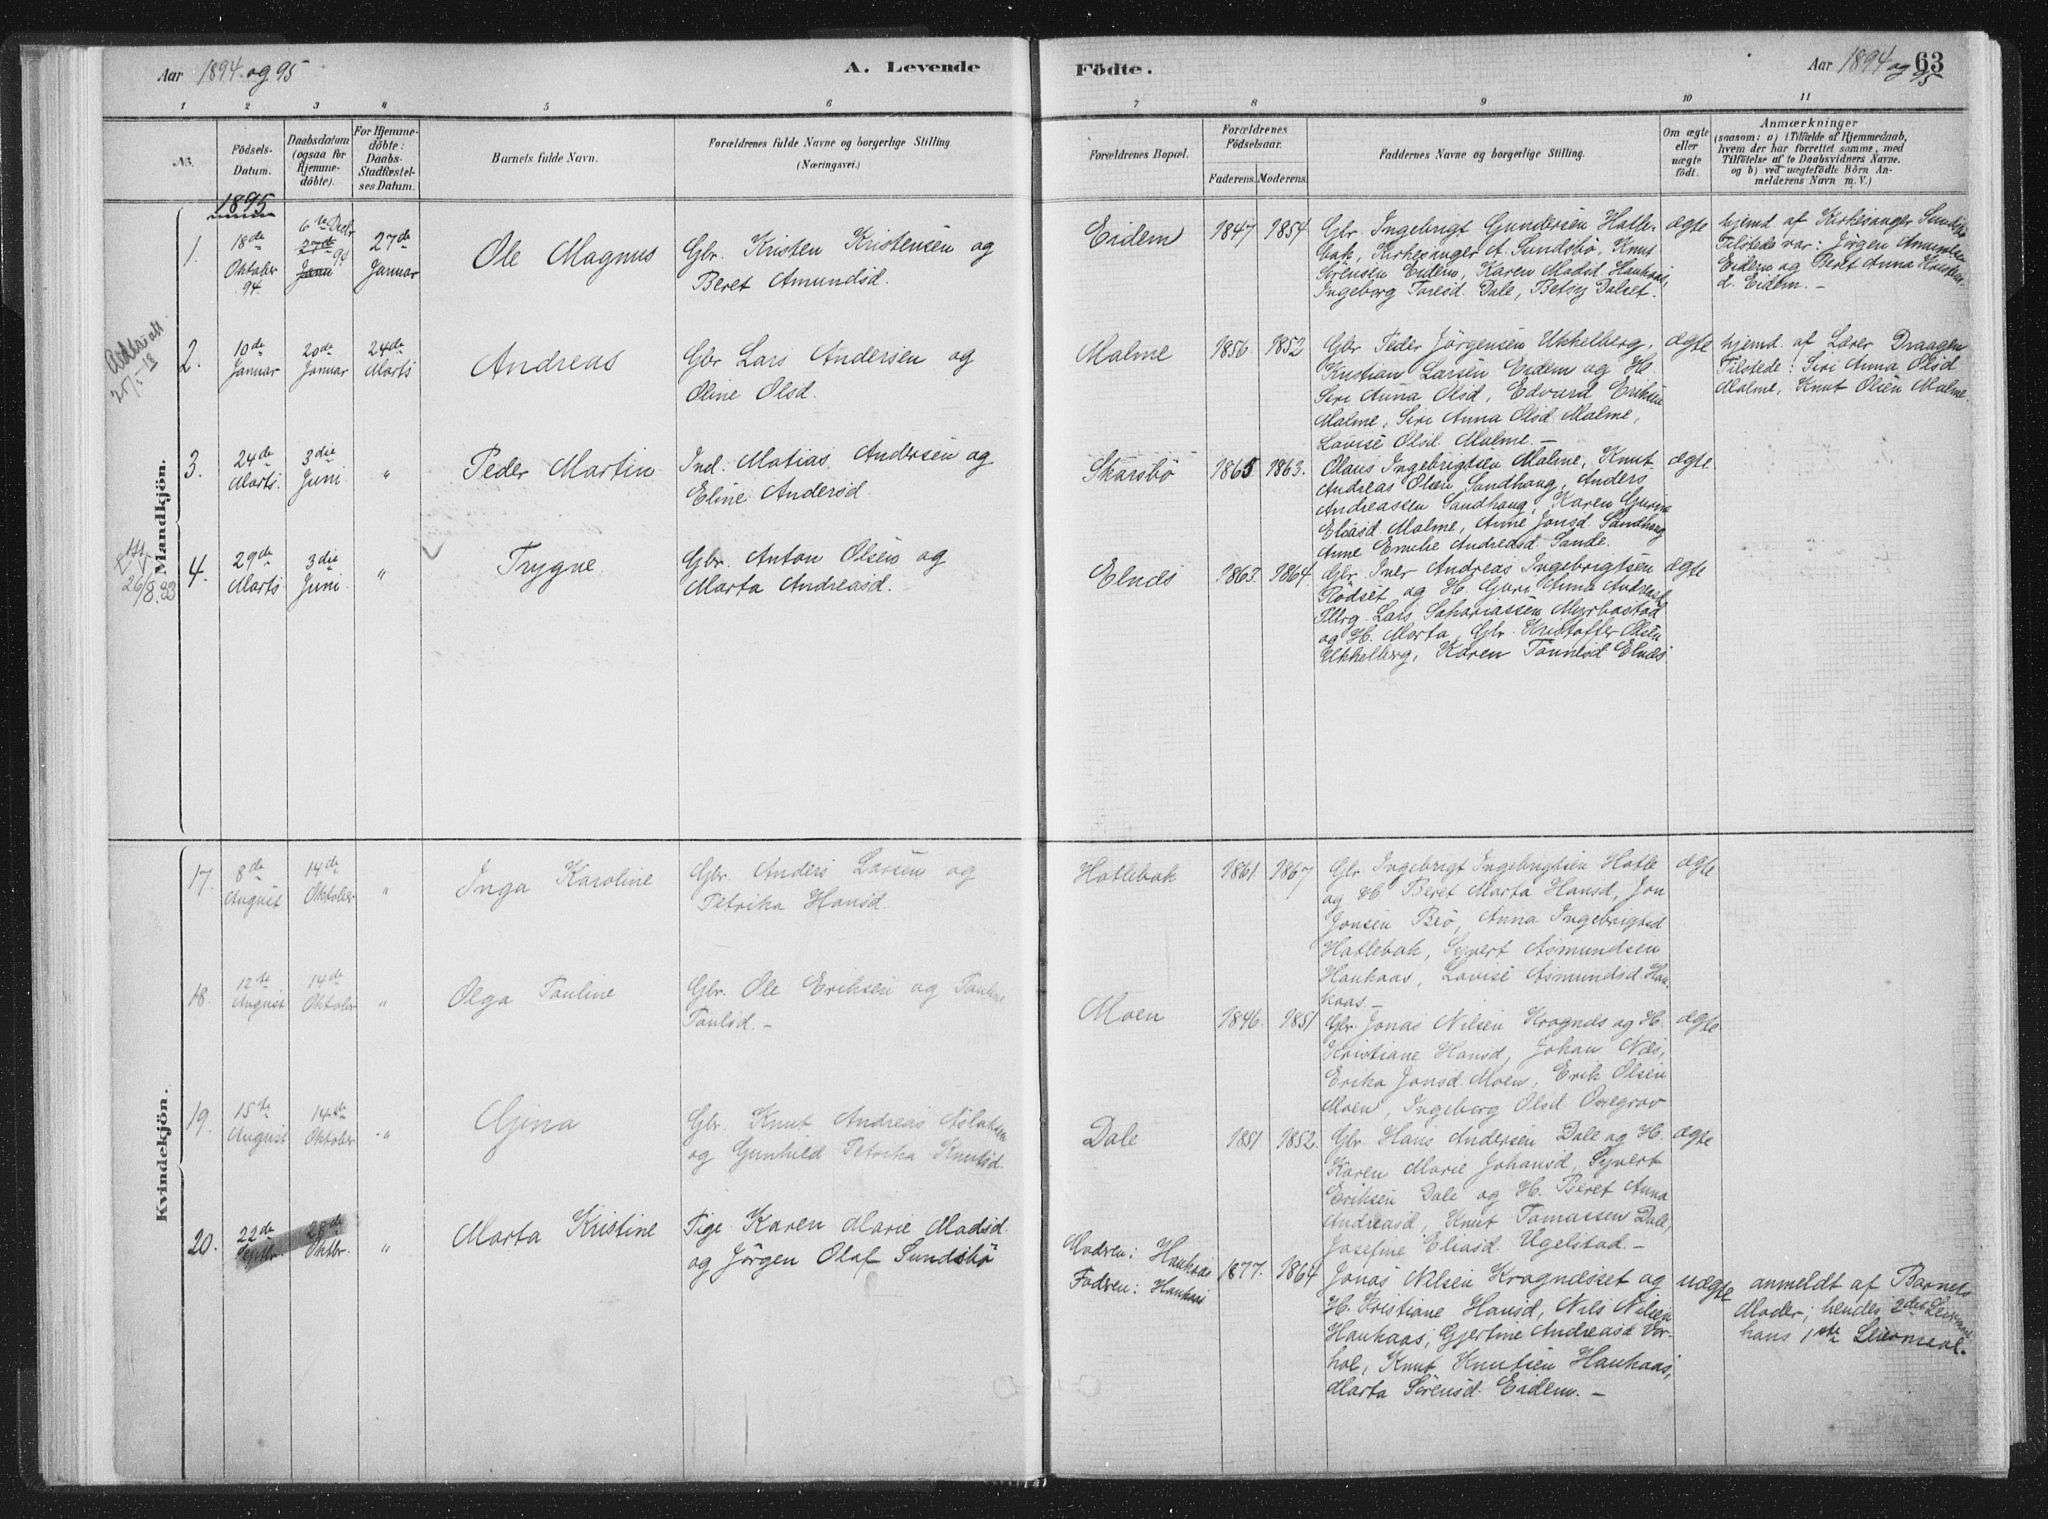 Aar 1894 og 95
A. Levende
Födte.
Aar 1894 og 95
63
1 2 3 4 5 6 7 8 9 10 11
No.
Födsels-Datum.
Daabsdatum (ogsaa for Hjemme-döbte).
For Hjemme-döbte: Daabs-Stadfæstel-ses Datum.
Barnets fulde Navn.
Forældrenes fulde Navne og borgerlige Stilling
(Næringsvei.)
Forældrenes Bopæl.
Forældrenes Födselsaar.
Faderens. Moderens.
Faddernes Navne og borgerlige Stilling.
Om ægte eller uægte födt.
Anmærkninger
(saasom: a) i Tilfælde af Hjemmedaab,
hvem der har forrettet samme, med
Tilföielse af to Daabsvidners Navne.
og b) ved uægtefödte Börn An-
melderens Navn m. V.)
Mandkjön.
1895
1.
18de Oktober 94.
6te Decbr 94
27de Janu
27de Januar
Ole Magnus
Gbr. Kristen Kristensen og
Beret Amundsd.
Eidem
1847 1854
Gbr. Ingebrigt Gundersen Hatle-
bak, Kirkesanger A. Sundsbö, Knut
Sörensen Eidem, Karen Madsd. Haukaas,
Ingeborg Toresd. Dale, Betsy Dalset.
ægte
hjemd. af Kirkesanger Sundsbö
Tilstede var: Jörgen Amundsen
Eidem og Beret Anna Kristens-
d. Eidem. —
2.
10de Januar
20de Januar
24de Marts
Andreas
Gbr. Lars Andersen og
Oline Olsd.
Malme
1856. 1852
Gbr. Peder Jörgensen Ukkelberg,
Kristian Larsen Eidem og H.
Siri Anna Olsd, Edvard Eriksen
Malme, Siri Anna Olsd. Malme,
Lovise Olsd. Malme. —
ægte
hjemd. af Lærer Draagen
Tilstede: Siri Anna Olsd
Malme, Knut Olsen Malme.
3.
24de Marts.
3die Juni
"
Peder Martin
Ind. Matias Andersen og
Eline Andersd.
Skarsbö
1865 1863.
Olaus Ingebrigtsen Malme, Knut
Andreas Olsen Sandhaug, Anders
Andreassen Sandhaug, Karen Gurine
Eliasd Malme, Anne Jonsd. Sandhaug
Anne Emelie Andreasd. Sande.
ægte
4.
29de Marts
3die Juni
"
Trygve
Gbr. Anton Olsen og
Marta Andreasd.
Elnæs
1863. 1864.
Gbr. Iver Andreas Ingebrigtsen
Rödset og H. Guri Anna Andreasd.
Lars Sakariassen Myrbostad
og H. Marta, Gbr. Kristoffer Olsen
Ukkelberg, Karen Tönnesd Elnæs
ægte
26/8.33
Kvindekjön.
17.
8de August
14de Oktober
"
Inga Karoline
Gbr. Anders Larsen og
Petrika Hansd.
Hatlebak
1861. 1867
Gbr. Ingebrigt Ingebrigtsen Hatle
og H. Beret Marta Hansd, Jon
Jonsen Brö, Anna Ingebrigtsd
Hatlebak, Syvert Asmundsen
Haukaas, Lovise Asmundsd Hau-
kaas —
ægte
18.
12te August
14de Oktober
"
Olga Pauline
Gbr. Ole Eriksen og Pauline
Paulsd. —
Moen
1846. 1851
Gbr. Jonas Nilsen Kragnæs og H.
Kristiane Hansd, Johan Næs,
Erika Jonsd. Moen, Erik Olsen
Moen, Ingeborg Olsd. Ooregrav
ægte
19.
15de August
14de Oktober
"
Gjena
Gbr. Knut Andreas Aslaksen
og Gunhild Petrika Knutsd.
Dale
1851 1852.
Gbr. Hans Andersen Dale og H.
Karen Marie Johansd, Syvert
Eriksen Dale og H. Beret Anna
Andreasd, Knut Tomassen Dale,
Josefine Eliasd. Ugelstad. —
ægte
20.
22de Septbr.
28de Oktbr.
"
Marta Kristine
Pige Karen Marie Madsd.
og Jörgen Olaf Sundsbö
Modren: Haukaas
Fadren: Haukaas
1877. 1864
Jonas Nilsen Kragnæsset og
H. Kristiane Hansd, Nils Nilsen
Haukaas, Gjertine Andreasd Vor-
hol, Knut Knutsen Haukaas,
Marta Sörensd. Eidem. —
uægte
anmeldt af Barnets
Moder; hendes 2det Leiermaal
hans 1ste Leiermaal.